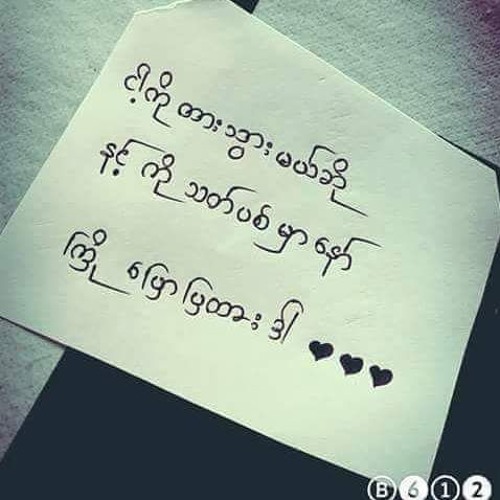 ငါ့ကို ထားသွားမယ်ဆို
နင့် ကို သတ်ပစ်မှာနော်
ကြို ပြောပြထား ဒါ ♥♥♥
B612